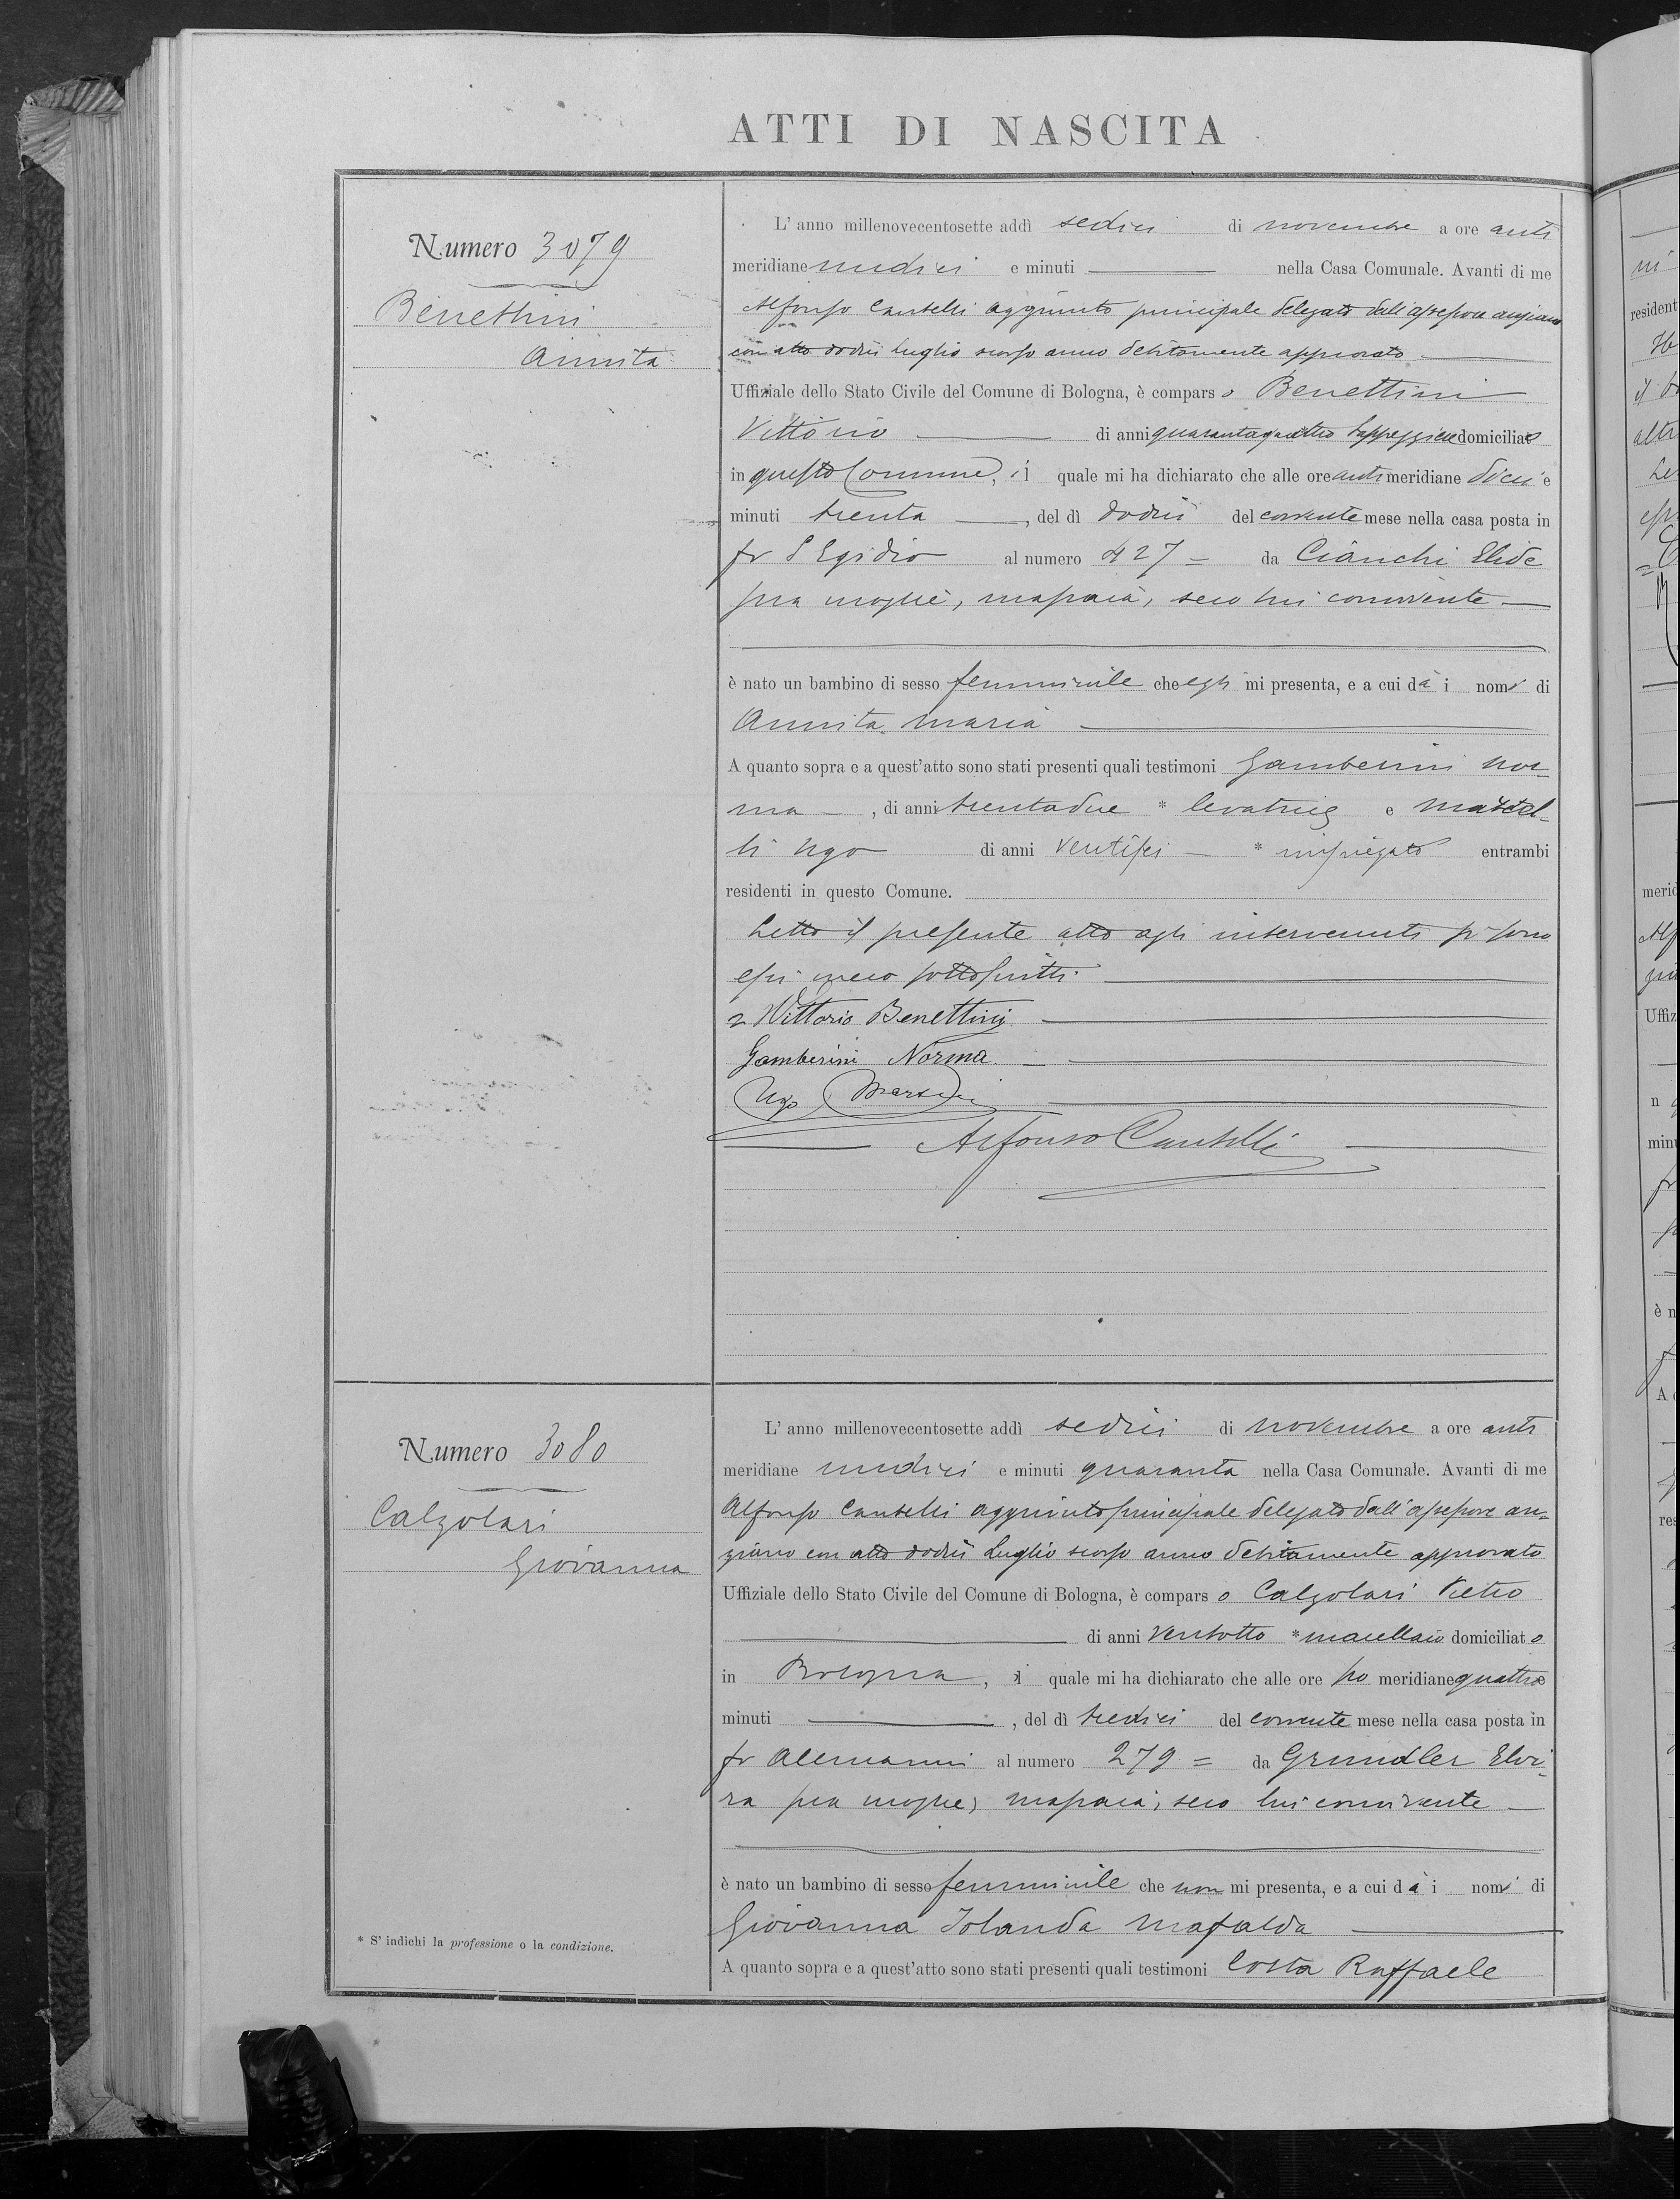 ATTI DI NASCITA
Numero 3079
Benettini
Annita
L'anno millenovecentosette addì sedici di novembre a ore anti
meridiane undici e minuti — nella Casa Comunale. Avanti di me
Alfonso Cantelli aggiunto principale delegato dall'assessore anziano
con atto dodici Luglio scorso anno debitamente approvato
Uffiziale dello Stato Civile del Comune di Bologna, è comparso Benettini
Vittorio — di anni quarantaquattro tappezziere domiciliato
in questo Comune, il quale mi ha dichiarato che alle ore anti meridiane dieci e
minuti trenta —, del dì dodici del corrente mese nella casa posta in
fr S Egidio al numero 427 = da Cianchi Elide
sua moglie, massaia, seco lui convivente —
è nato un bambino di sesso femminile che egli mi presenta, e a cui dà i nomi di
Annita Maria —
A quanto sopra e a quest'atto sono stati presenti quali testimoni Gamberini Nor=
ma —, di anni trentadue * levatrice e Martel=
li Ugo di anni ventisei — * impiegato entrambi
residenti in questo Comune.
Letto il presente atto agli intervenuti si sono
essi meco sottoscritti.
Vittorio Benettini
Gamberini Norma
Ugo
Alfonso Cantelli
Numero 3080
Calzolari
Giovanna
L'anno millenovecentosette addì sedici di novembre a ore anti
meridiane undici e minuti quaranta nella Casa Comunale. Avanti di me
Alfonso Cantelli aggiunto principale delegato dall'assessore an=
ziano con atto dodici Luglio scorso anno debitamente approvato
Uffiziale dello Stato Civile del Comune di Bologna, è comparso Calzolari Pietro
— di anni ventotto * macellaio domiciliato
in Bologna, il quale mi ha dichiarato che alle ore po meridiane quattro e
minuti —, del dì tredici del corrente mese nella casa posta in
fr Alemanni al numero 279 = da Grundler Elvi=
ra sua moglie, massaia, seco lui convivente —
è nato un bambino di sesso femminile che non mi presenta, e a cui dà i nomi di
Giovanna Iolanda Mafalda —
A quanto sopra e a quest'atto sono stati presenti quali testimoni Costa Raffaele
* S'indichi la professione o la condizione.